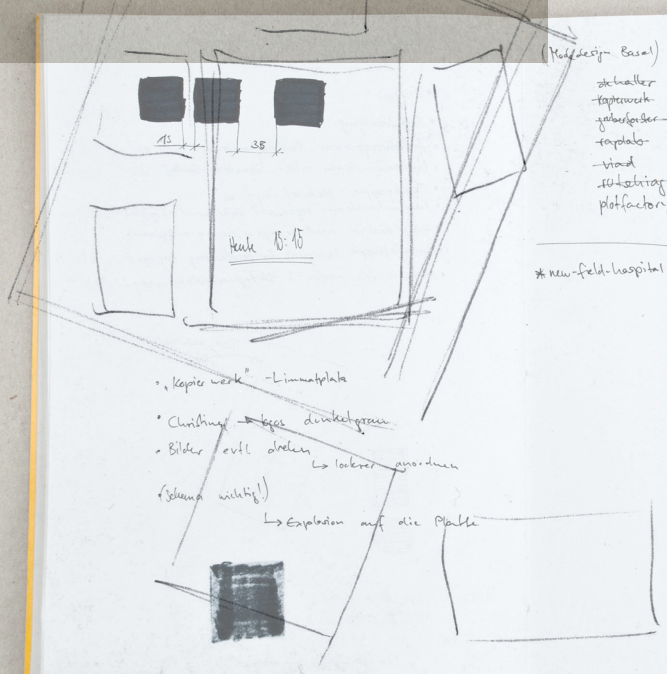 (Modedesign Basel)
kopierwerk
gruberforster
raplab
viad
plotfactor
* new-field-hospital
13
38
Heute 15:15
• „Kopierwerk" - Limmatplatz
• Christina → Logos dunkelgrau
• Bilder evtl drehen
↳ lockerer anordnen
(Schema wichtig!)
↳ Explosion auf die Platte